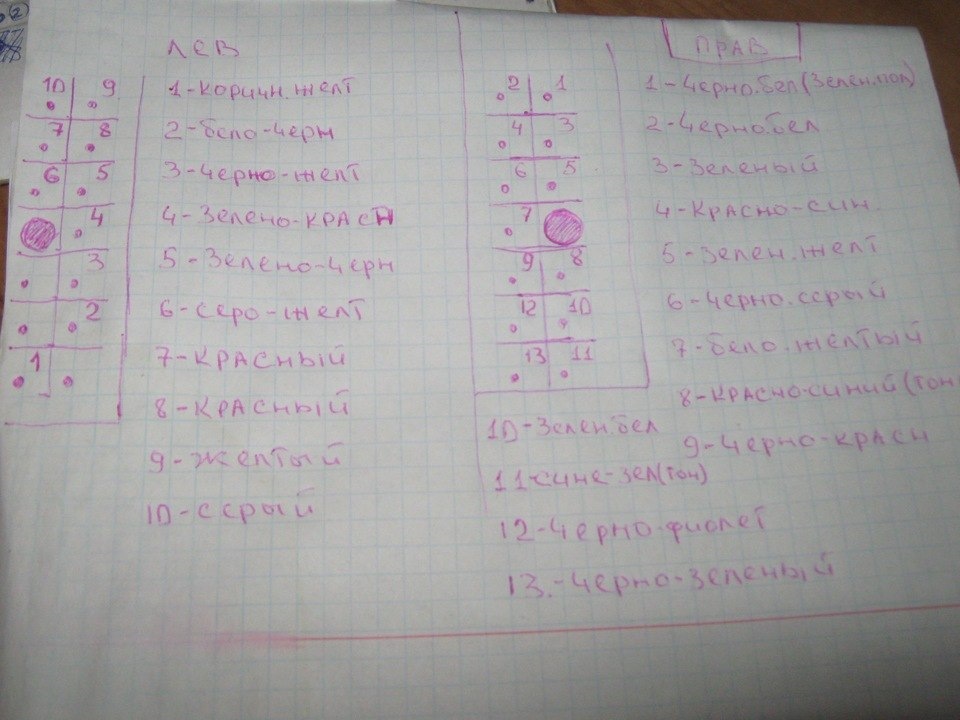 2
ЛЕВ
10 9
7 8
6 5
4
3
2
1
1-коричн.желт
2-бело-черн
3-черно-желт
4-зелено-красн
5-зелено-черн
6-серо-желт
7-красный
8-красный
9-желтый
10-серый
ПРАВ
2 1
4 3
6 5
7
9 8
12 10
13 11
1-черно.бел(зелен.пол)
2-черно.бел
3-зеленый
4-красно-син
5-зелен.желт
6-черно.серый
7-бело.желтый
8-красно-синий(тон
9-черно-красн
10-зелен.бел
11-сине-зел(тон)
12-черно-фиолет
13.-черно-зеленый